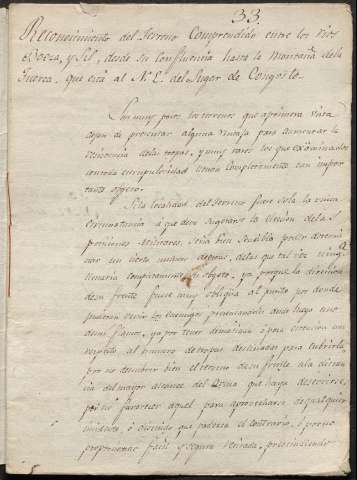 33.
Reconocimiento del Terreno Comprendido entre los rios
Boeza, y Sil, desde su Confluencia hasta la Montaña de la
Guerca, que está al N.E. del Lugar de Congosto.
Son muy raros los terrenos que a primera vista
dejan de procurar alguna ventaja para aumentar la
resistencia de las tropas, y muy raros los que examinados
con toda escrupulosidad llenan completamente tan impor
tante objeto.
Si la localidad del terreno fuese sola la unica
circunstancia á que deve sugetarse la eleccion de las
posiciones Militares, seria bien sensible poder determi
nar en cierto numero de ellas, de las que tal vez ningu
na llenaria completamente el objeto, ya porque la direccion
de su frente fuese muy obliqua al punto por donde
pudieran venir los enemigos presentando desde luego uno
de sus flancos, ya por tener demasiada ó poca extension con
respecto al numero de tropas destinadas para cubrirla,
por no descubrir bien el terreno de su frente a la distan
cia del mayor alcance del Arma que haya de servirse,
por no favorecer aquel para aprovecharse de qualquier
incidente, ó descuido que padezca el contrario, ó porque
proporcionar facil y segura retirada, prescindiendo